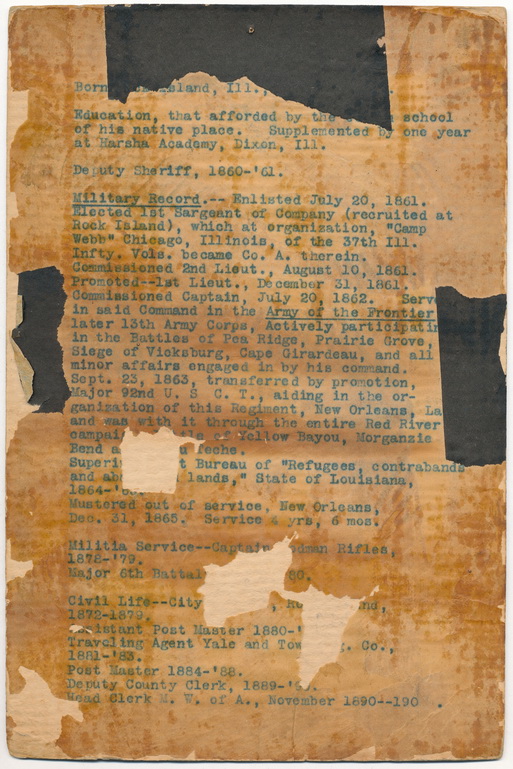 Born Island, Ill.,
Education, that afforded by the school
of his native place. Supplemented by one year
at Harsha Academy, Dixon, Ill.
Deputy Sheriff, 1860-'61.
Military Record.-- Enlisted July 20, 1861.
Elected 1st Sargeant of Company (recruited at
Rock Island), which at organization, "Camp
Webb" Chicago, Illinois, of the 37th Ill.
Infty. Vols. became Co. A. therein.
Commissioned 2nd Lieut., August 10, 1861.
Promoted--1st Lieut., December 31, 1861.
Commissioned Captain, July 20, 1862. Serv
in said Command in the Army of the Frontier
later 13th Army Corps, Actively participatin
in the Battles of Pea Ridge, Prairie Grove,
Siege of Vicksburg, Cape Girardeau, and all
minor affairs engaged in by his command.
Sept. 23, 1863, transferred by promotion,
Major 92nd U. S C. T., aiding in the or-
ganization of this Regiment, New Orleans, La
and was with it through the entire Red River
campai of Yellow Bayou, Morganzie
Bend a Teche.
Superi t Bureau of "Refugees, contrabands
and ab lands," State of Louisiana,
1864-'
Mustered out of service, New Orleans,
Dec. 31, 1865. Service 4 yrs, 6 mos.
Militia Service--Captain odman Rifles,
1878-'79.
Major 6th Battal 80.
Civil Life--City , Ro nd,
1872-1879.
Assistant Post Master 1880-'
Traveling Agent Yale and Tow g. Co.,
1881-'83.
Post Master 1884-'88.
Deputy County Clerk, 1889-'
Head Clerk M. W. of A., November 1890--190 .